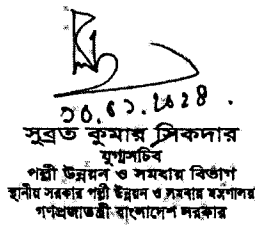 ১০.০১.২০২৪.
সুব্রত কুমার সিকদার
যুগ্মসচিব
পল্লী উন্নয়ন ও সমবায় বিভাগ
স্থানীয় সরকার পল্লী উন্নয়ন ও সমবায় মন্ত্রণালয়
গণপ্রজাতন্ত্রী বাংলাদেশ সরকার